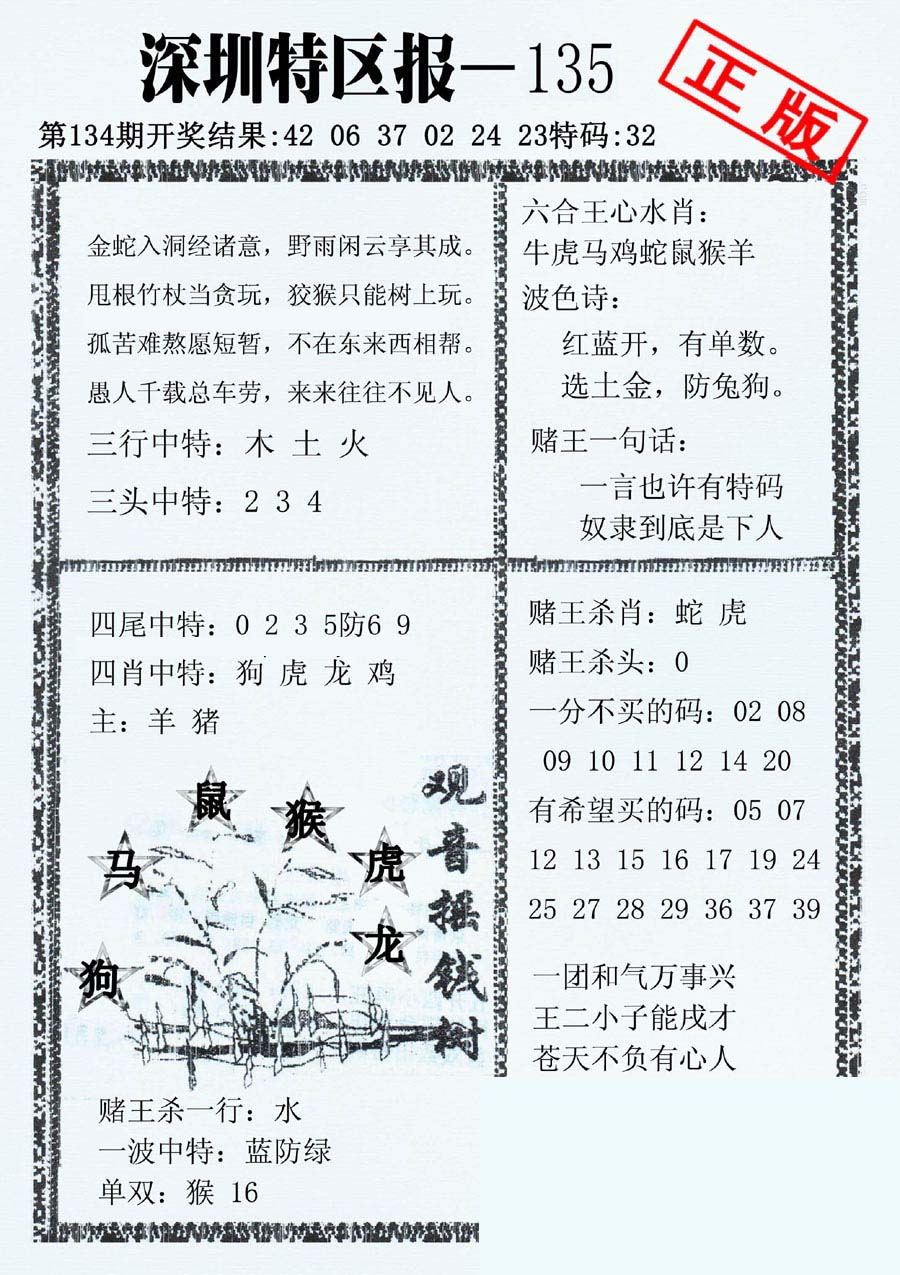 深圳特区报—135
正版
第134期开奖结果:42 06 37 02 24 23特码:32
金蛇入洞经诸意，野雨闲云享其成。
甩根竹杖当贪玩，狡猴只能树上玩。
孤苦难熬愿短暂，不在东来西相帮。
愚人千载总车劳，来来往往不见人。
三行中特：木 土 火
三头中特：2 3 4
六合王心水肖：
牛虎马鸡蛇鼠猴羊
波色诗：
红蓝开，有单数。
选土金，防兔狗。
赌王一句话：
一言也许有特码
奴隶到底是下人
四尾中特：0 2 3 5防6 9
四肖中特：狗 虎 龙 鸡
主：羊 猪
鼠
猴
马
虎
龙
狗
观音摇钱树
赌王杀一行：水
一波中特：蓝防绿
单双：猴 16
赌王杀肖：蛇 虎
赌王杀头：0
一分不买的码：02 08
09 10 11 12 14 20
有希望买的码：05 07
12 13 15 16 17 19 24
25 27 28 29 36 37 39
一团和气万事兴
王二小子能戌才
苍天不负有心人